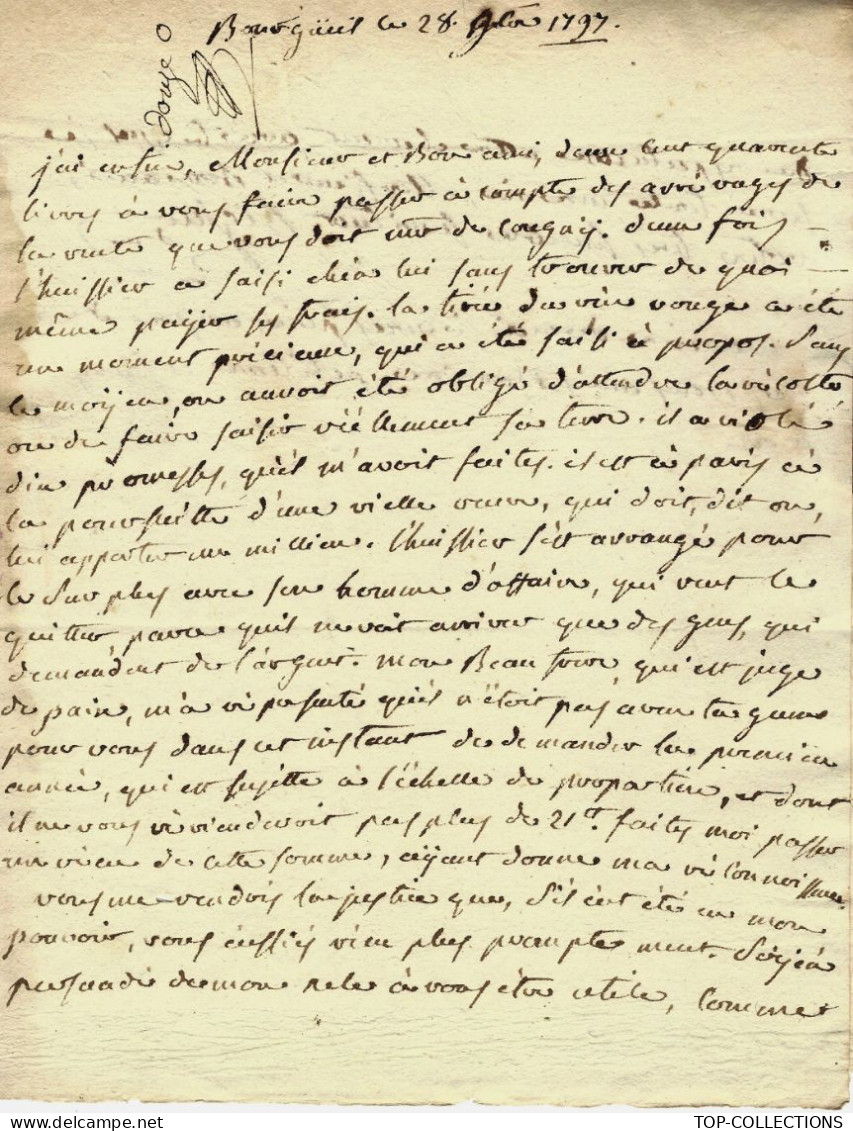 Bourgüeil le 28 1797.
douze
j'ai enfin, Monsieur et Bon ami, deux cent quarante
livres à vous faire passer à compte des arrérages de
la rente que vous doit mr de Cougny. deux fois
l'huissier a saisi chéz lui sans trouver de quoi
même païjer ses frais. la tirée du vin rouge a été
un moment précieux, qui a été saisi à propos. Sans
le moÿen, on auroit été obligé d'attendre la récolte
ou de faire saisir réellement sa terre. il a violé
dix promesses, qu'il m'avoit faites. il est à paris à
la poursuitte d'une vielle veuve, qui doit, dit on,
lui apporter un million. l'huissier s'est arrangé pour
le Surplus avec son homme d'affaire, qui veut le
quitter parce qu'il ne voit arriver que des gens, qui
demandent de l'argent. mon Beau frere, qui est juge
de paix, m'a représenté qu'il n'étoit pas avantageux
pour vous dans cet instant de demander la premiere
année, qui est sujette à l'échelle de proportion, et dont
il ne vous reviendroit pas plus de 21tt. faites moi passer
un réçu de cette somme, aÿant donné ma réconnoissance.
vous me rendrés la justice que, s'il eut été en mon
pouvoir, vous eussiés réçu plus promptement. Soÿéz
persuadé de mon zele à vous être utile, comme
TOP-COLLECTIONS